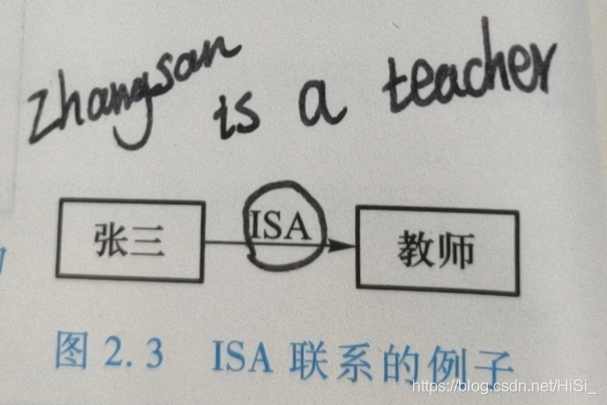 zhangsan is a teacher
张三 ISA 教师
图 2.3 ISA 联系的例子
https://blog.csdn.net/HiSi_